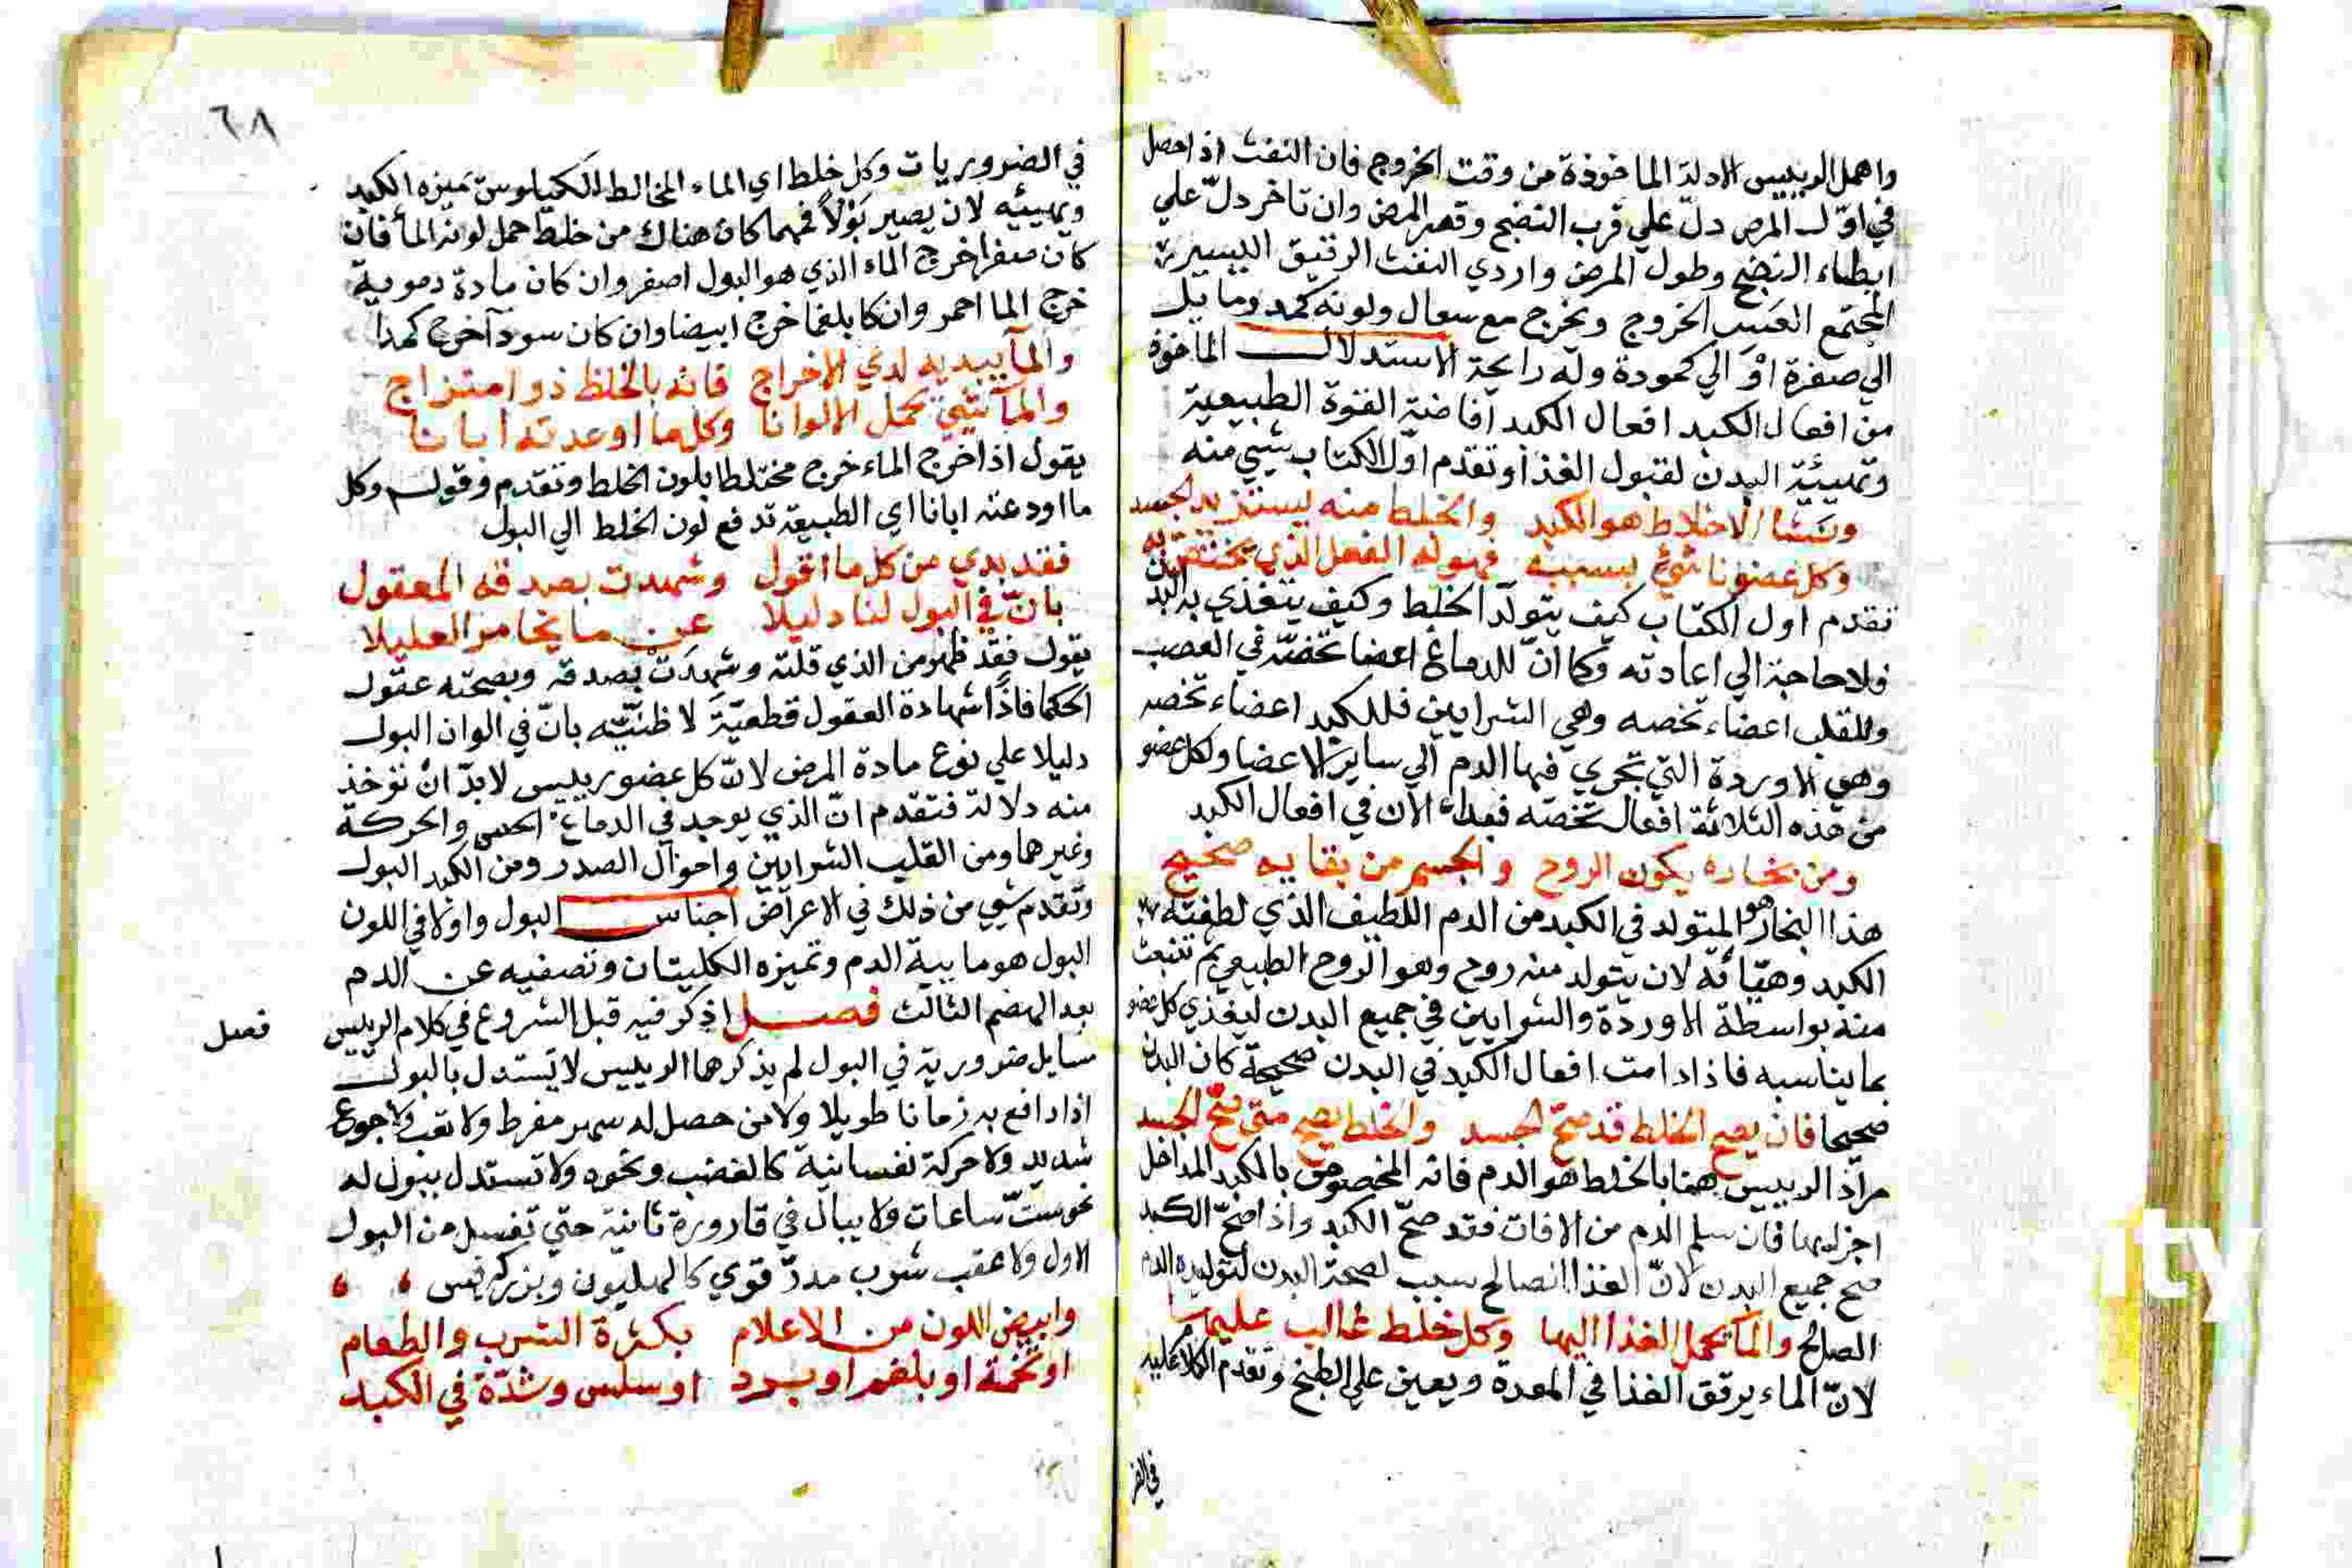 واهمل الرييس الادلة الماخوذة من وقت الخروج فان النفث اذا حصل
في اوّل المرض دلّ علي قرب النضج وقصر المرض وان تاخر دلّ علي
ابطاء النضج وطول المرض واردي النفث الرقيق اليسير
المجتمع العسر الخروج ويخرج مع سعال ولونه كمد وما يل
الي صفرة او الي كمودة وله رايحة الاستدلال الماخوذ
من افعال الكبد افعال الكبد افاضة القوة الطبيعية
وتهيئة البدن لقبول الغذا وتقدم اول الكتاب شيي منه
ومنشا الاخلاط هو الكبد والخلط منه يستزيد الجسد
وكل عضو ناشئ بسببه فهو له الفعل الذي يختص به
تقدم اول الكتاب كيف يتولد الخلط وكيف يتغذي به البدن
فلا حاجة الي اعادته وكما انّ للدماغ اعضا تخصّه في العصب
وللقلب اعضاء تخصه وهي الشرايين فللكبد اعضاء تخصه
وهي الاوردة التي تجري فيها الدم الي ساير الاعضا ولكل عضو
من هذه الثلاثة افعال تخصّه فبداء الان في افعال الكبد
ومن بخاره يكون الروح والجسم من بقايه صحيح
هذا البخار هو المتولد في الكبد من الدم اللطيف الذي لطفته
الكبد وهيّأته لان يتولد منه روح وهو الروح الطبيعي ثم تنبعث
منه بواسطة الاوردة والشرايين في جميع البدن ليغذي كل عضو
بما يناسبه فاذا دامت افعال الكبد في البدن صحيحة كان البدن
صحيحا فان يصح الخلط قد صحّ الجسد والخلط يصح متي صحّ الجسد
مراد الرييس ههنا بالخلط هو الدم فانه المخصوص بالكبد المداخل
اجزايها فان سلم الدم من الافات فقد صحّ الكبد واذا صحّ الكبد
صح جميع البدن لانّ الغذا الصالح سبب لصحة البدن لتوليده الدم
الصالح والما يحمل الغذا اليها وكل خلط غالب عليها
لانّ الماء يرقق الغذا في المعدة ويعين علي الطبخ وتقدم الكلام عليه
في الضر
٦٨
في الضروريات وكل خلط اي الماء المخالط الكيلوس تميزه الكبد
ويهيئه لان يصير بَوْلاً فمهما كان هناك من خلط حمل لونه الما فان
كان صفرا خرج الماء الذي هو البول اصفر وان كان مادة دموية
خرج الما احمر وان كا بلغما خرج ابيضا وان كان سودآ خرج كمدا
والمآ يبديه لدي الاخراج فانه بالخلط ذو امتزاج
والمآ يحمل الالوانا وكلما اوعدته ابانا
يقول اذا خرج الماء خرج مختلطا بلون الخلط وتقدم وقوله وكل
ما اودعته ابانا اي الطبيعة تدفع لون الخلط الي البول
فقد بدي من كل ما اقول وشهدت بصدقه المعقول
بانّ في البول لنا دليلا عن ما يخامر العليلا
يقول فقد ظهر من الذي قلته وشهدت بصدقه وبصحته عقول
الحكما فاذا شهادة العقول قطعيّة لا ظنّيّه بانّ في الوان البول
دليلا علي نوع مادة المرض لانّ كل عضو رييس لابدّ انْ توخذ
منه دلالة فتقدم انّ الذي يوجد في الدماغ الحس والحركة
وغيرهما ومن القلب الشرايين واحوال الصدر ومن الكبد البول
وتقدم شيي من ذلك في الاعراض اجناس البول واولا في اللون
البول هو ماىية الدم وتميزه الكليتان وتصفيه عن الدم
بعد الهضم الثالث فصل اذكر فيه قبل الشروع في كلام الرييس
فصل
مسايل ضرورية في البول لم يذكرها الرييس لا يستدل بالبول
اذا دافع به زمانا طويلا ولا من حصل له سهر مفرط ولا تعب ولا جوع
شديد ولا حركة نفسانية كالغضب ونحوه ولا تستدل ببول له
نحو ستّ ساعات ولا يبال في قارورة ثانية حتي تغسل من البول
الاول ولا عقب شرب مدرّ قوي كالهليون وبزر كرفس
وابيض اللون من الاعلام بكثرة الشرب والطعام
او تخمة او بلغم او برد او سلس وشدّة في الكبد